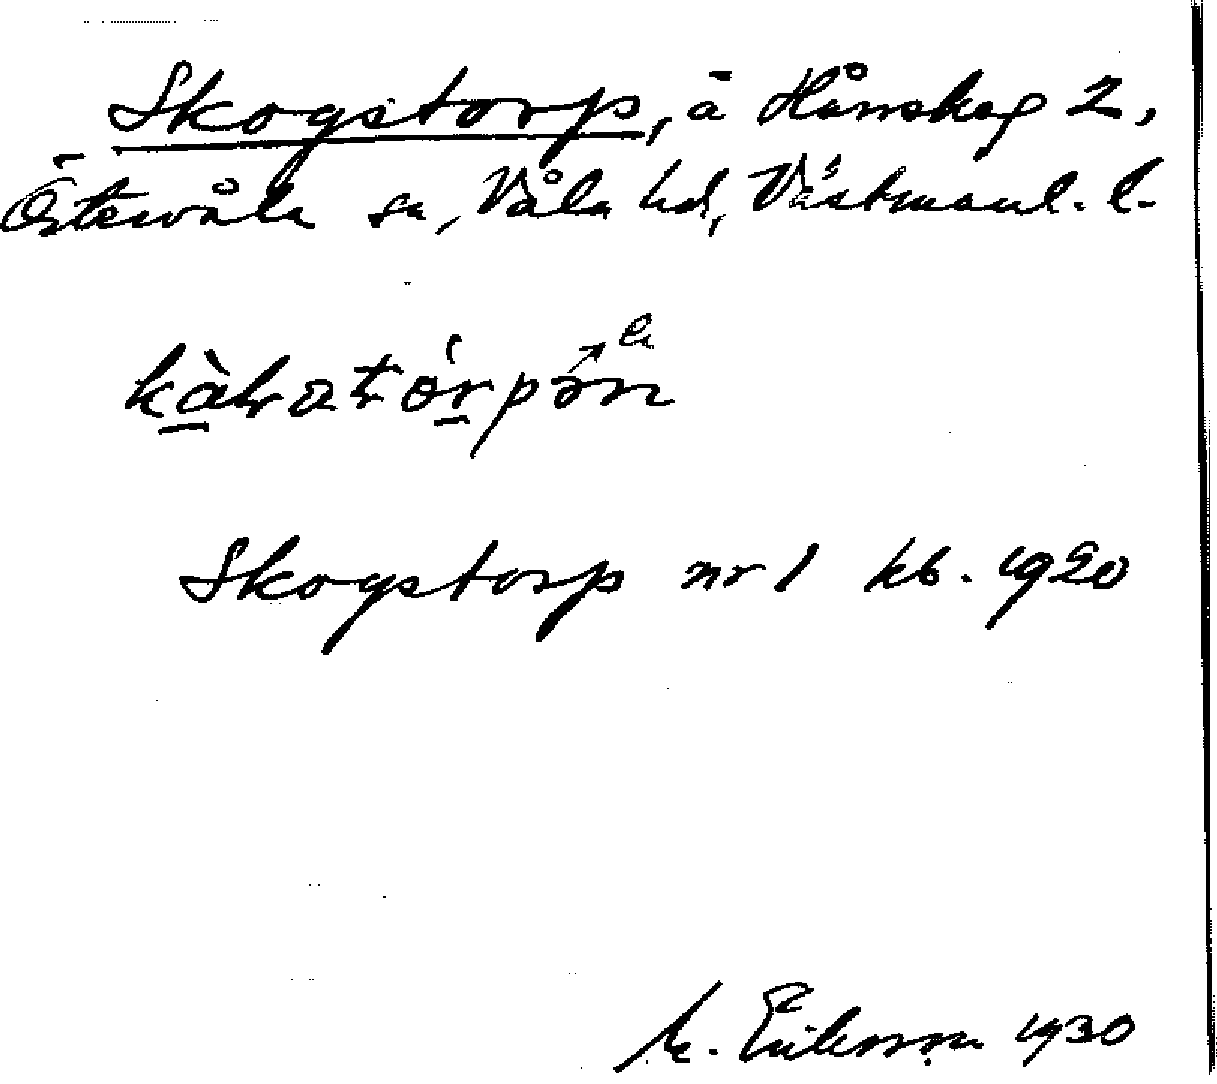 Skogstorp, å Hårsskog 2,
Östervåla sn, Våla hd, Västmanl. l.
Skogstorp nr 1 kb. 1920
M. Eriksson 1930